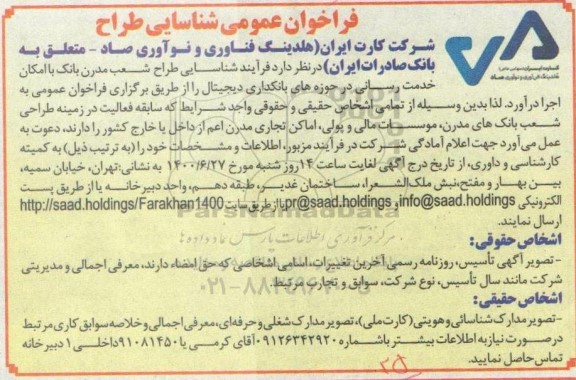 فراخوان عمومی شناسایی طراح
شرکت کارت ایران (هلدینگ فناوری و نوآوری صاد - متعلق به
بانک صادرات ایران) در نظر دارد فرآیند شناسایی طراح شعب مدرن بانک با امکان
خدمت رسانی در حوزه های بانکداری دیجیتال را از طریق برگزاری فراخوان عمومی به
اجرا درآورد. لذا بدین وسیله از تمامی اشخاص حقیقی و حقوقی واجد شرایط که سابقه فعالیت در زمینه طراحی
شعب بانک های مدرن، موسسات مالی و پولی، اماکن تجاری مدرن اعم از داخل یا خارج کشور را دارند، دعوت به
عمل می آورد جهت اعلام آمادگی شرکت در فرآیند مزبور، اطلاعات و مشخصات خود را (به ترتیب ذیل) به کمیته
کارشناسی و داوری، از تاریخ درج آگهی لغایت ساعت ۱۴ روز شنبه مورخ ۱۴۰۰/۶/۲۷ به نشانی: تهران، خیابان سمیه،
بین بهار و مفتح، نبش ملک الشعرا، ساختمان غدیر، طبقه دهم، واحد دبیرخانه یا از طریق پست
الکترونیکی info@saad.holdings و pr@saad.holdings یا از طریق سایت http://saad.holdings/Farakhan1400
ارسال نمایند.
اشخاص حقوقی:
- تصویر آگهی تأسیس، روزنامه رسمی آخرین تغییرات، اسامی اشخاصی که حق امضاء دارند، معرفی اجمالی و مدیریتی
شرکت مانند سال تأسیس، نوع شرکت، سوابق و تجارب مرتبط.
اشخاص حقیقی:
- تصویر مدارک شناسائی و هویتی (کارت ملی)، تصویر مدارک شغلی و حرفه ای، معرفی اجمالی و خلاصه سوابق کاری مرتبط
در صورت نیاز به اطلاعات بیشتر با شماره ۰۹۱۲۶۳۴۲۹۲۰ آقای کرمی یا ۹۱۰۸۱۴۵۰ داخلی ۱ دبیرخانه
تماس حاصل نمایید.
ParsNamadData
۲۵